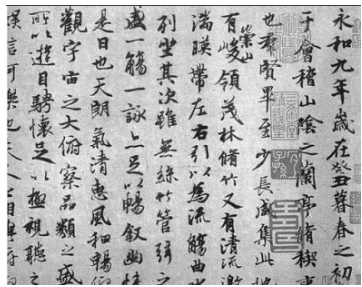 永和九年歲在癸丑暮春之初
于會稽山陰之蘭亭脩稧事
也群賢畢至少長咸集此地
有崇山峻領茂林脩竹又有清流激
湍暎帶左右引以為流觴曲水
列坐其次雖無絲竹管弦之
盛一觴一詠亦足以暢敘幽情
是日也天朗氣清惠風和暢仰
觀宇宙之大俯察品類之盛
所以遊目騁懷足以極視聽之
娛信可樂也夫人之相與